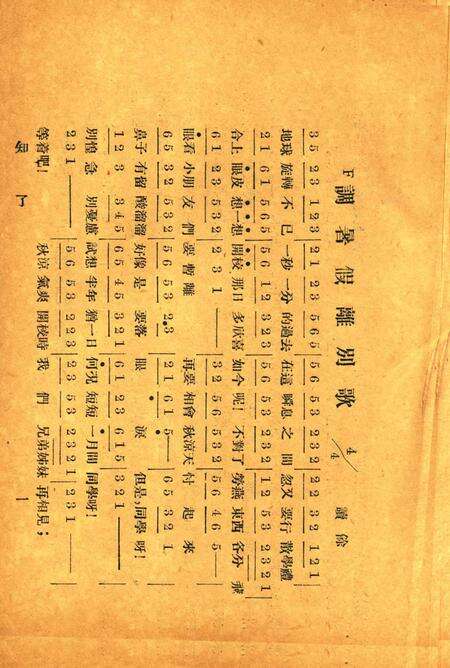 F調暑假離別歌 4/4 讀餘
3 5 2 3 1 2 3 | 2 1 2 3 5 6 5 | 5 6 5 3 2 3 2 | 2 2 3 2 1 2 1
地球旋轉不已一秒一分的過去在這瞬息之間忽又要行散學禮
2 1 6 1 5 6 5 | 5 6 1 2 3 2 3 | 5 6 5 3 2 3 2 | 1 2 5 3 2 3 2 1
合上眼皮想一想開校那日多欣喜如今呢!不對了勞燕東西各分飛
6 1 2 3 5 3 2 | 2 3 1 — | 3 2 5 6 5 3 2 | 5 6 4 6 5 —
眼看小朋友們要暫離再要相會秋涼天忖起來
6 5 3 2 5 3 2 | 5 6 5 3 2·3 | 2 1 6 1 5 — | 6 5 3 2 1.
鼻子有留酸溜溜好像是要落眼淚但是,同學呀!
1 2 3 3 4 5 | 6 5 4 5 3 2 1 | 6 1 2 3 6 1 5 | 3 2 1 —
別惶急別憂慮試想半年猶一日何況短短一月間同學呀!
2 3 1 — | 5 6 5 3 2 2 3 | 2 3 5 3 2 3 2 1 | 2 3 1
等着吧!秋涼氣爽開校時我們兄弟姊妹再相見;